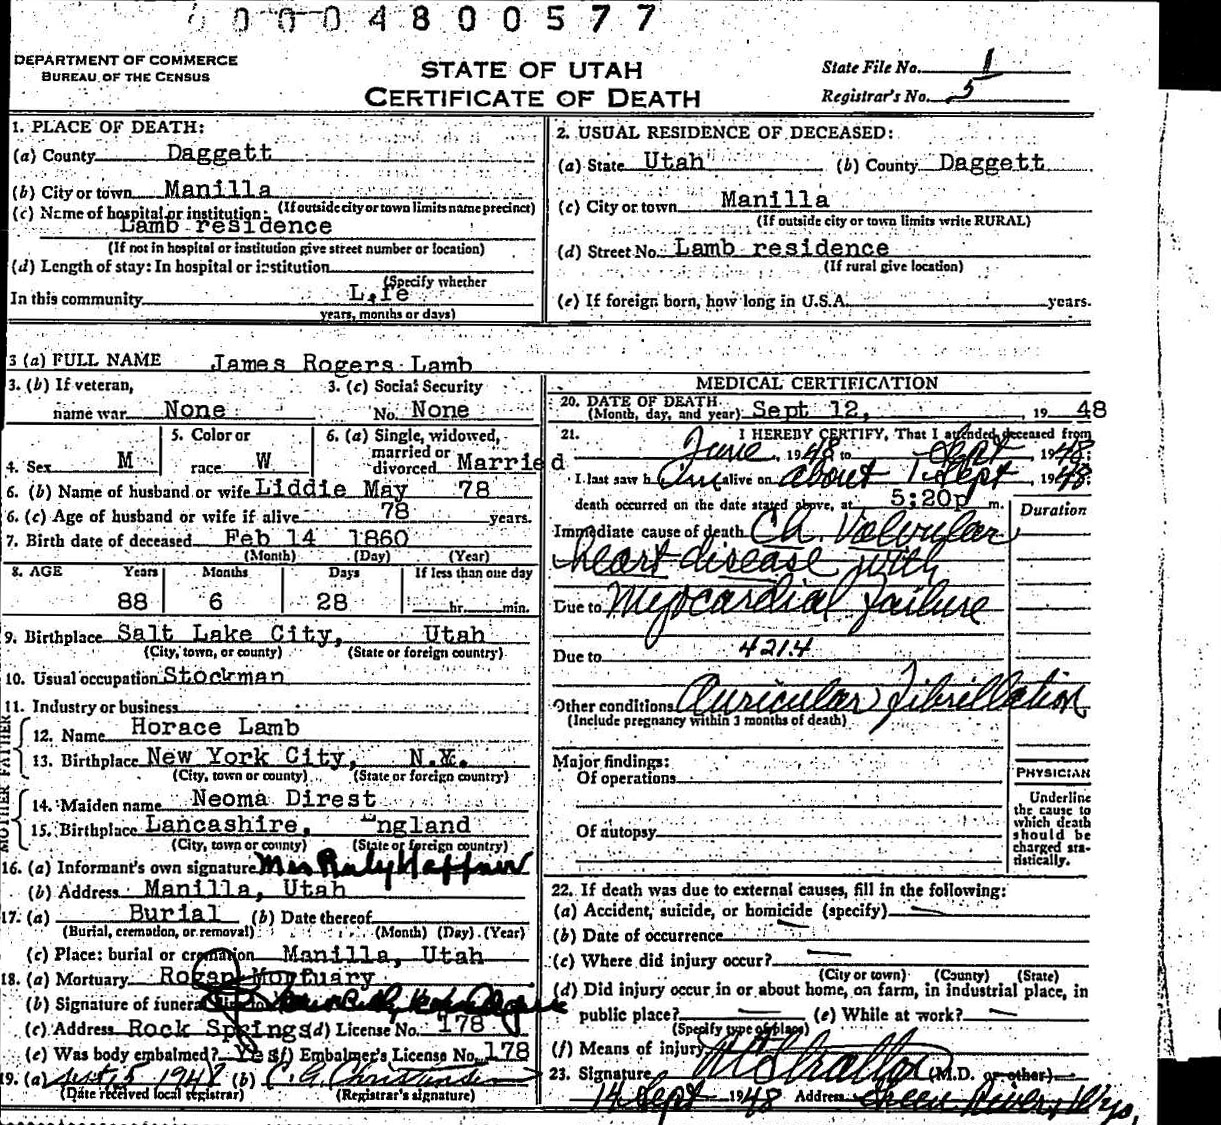 0004800577
DEPARTMENT OF COMMERCE
BUREAU OF THE CENSUS
STATE OF UTAH
CERTIFICATE OF DEATH
State File No. 1
Registrar's No. 5
1. PLACE OF DEATH:
(a) County Daggett
(b) City or town Manilla
(If outside city or town limits name precinct)
(c) Name of hospital or institution:
Lamb residence
(If not in hospital or institution give street number or location)
(d) Length of stay: In hospital or institution
(Specify whether
In this community Life
years, months or days)
2. USUAL RESIDENCE OF DECEASED:
(a) State Utah (b) County Daggett
(c) City or town Manilla
(If outside city or town limits write RURAL)
(d) Street No. Lamb residence
(If rural give location)
(e) If foreign born, how long in U.S.A. years.
3 (a) FULL NAME James Rogers Lamb
3. (b) If veteran,
name war None
3. (c) Social Security
No. None
4. Sex M
5. Color or
race W
6. (a) Single, widowed,
married or
divorced Married
6. (b) Name of husband or wife Liddie May 78
6. (c) Age of husband or wife if alive 78 years.
7. Birth date of deceased Feb 14 1860
(Month) (Day) (Year)
8. AGE Years Months Days If less than one day
88 6 28 hr. min.
9. Birthplace Salt Lake City, Utah
(City, town, or county) (State or foreign country)
10. Usual occupation Stockman
11. Industry or business
FATHER
12. Name Horace Lamb
13. Birthplace New York City, N.Y.
(City, town or county) (State or foreign country)
MOTHER
14. Maiden name Neoma Direst
15. Birthplace Lancashire, England
(City, town or county) (State or foreign country)
16. (a) Informant's own signature Mrs
(b) Address Manilla, Utah
17. (a) Burial (b) Date thereof
(Burial, cremation, or removal) (Month) (Day) (Year)
(c) Place: burial or cremation Manilla, Utah
18. (a) Mortuary Rogan Mortuary
(b) Signature of funeral
(c) Address Rock Springs (d) License No. 178
(e) Was body embalmed? Yes (f) Embalmer's License No. 178
19. (a) Sept 15 1948 (b) C. G. Christensen
(Date received local registrar) (Registrar's signature)
MEDICAL CERTIFICATION
20. DATE OF DEATH
(Month, day, and year) Sept 12, , 19 48
21. I HEREBY CERTIFY, That I attended deceased from
June , 1948 to Sept 1948;
I last saw him alive on about 1 Sept , 1948;
death occurred on the date stated above, at 5:20p m.
Duration
Immediate cause of death Ch. Valvular
heart disease with
Due to Myocardial failure
Due to 4214
Other conditions Auricular Fibrillation
(Include pregnancy within 3 months of death)
Major findings:
Of operations
Of autopsy
PHYSICIAN
Underline
the cause to
which death
should be
charged sta-
tistically.
22. If death was due to external causes, fill in the following:
(a) Accident, suicide, or homicide (specify)
(b) Date of occurrence
(c) Where did injury occur?
(City or town) (County) (State)
(d) Did injury occur in or about home, on farm, in industrial place, in
public place? (e) While at work?
(Specify type of place)
(f) Means of injury
23. Signature (M.D. or other)
14 Sept 1948 Address Green River, Wyo.